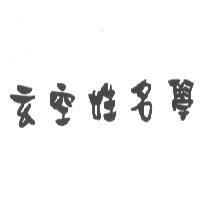 玄空姓名學